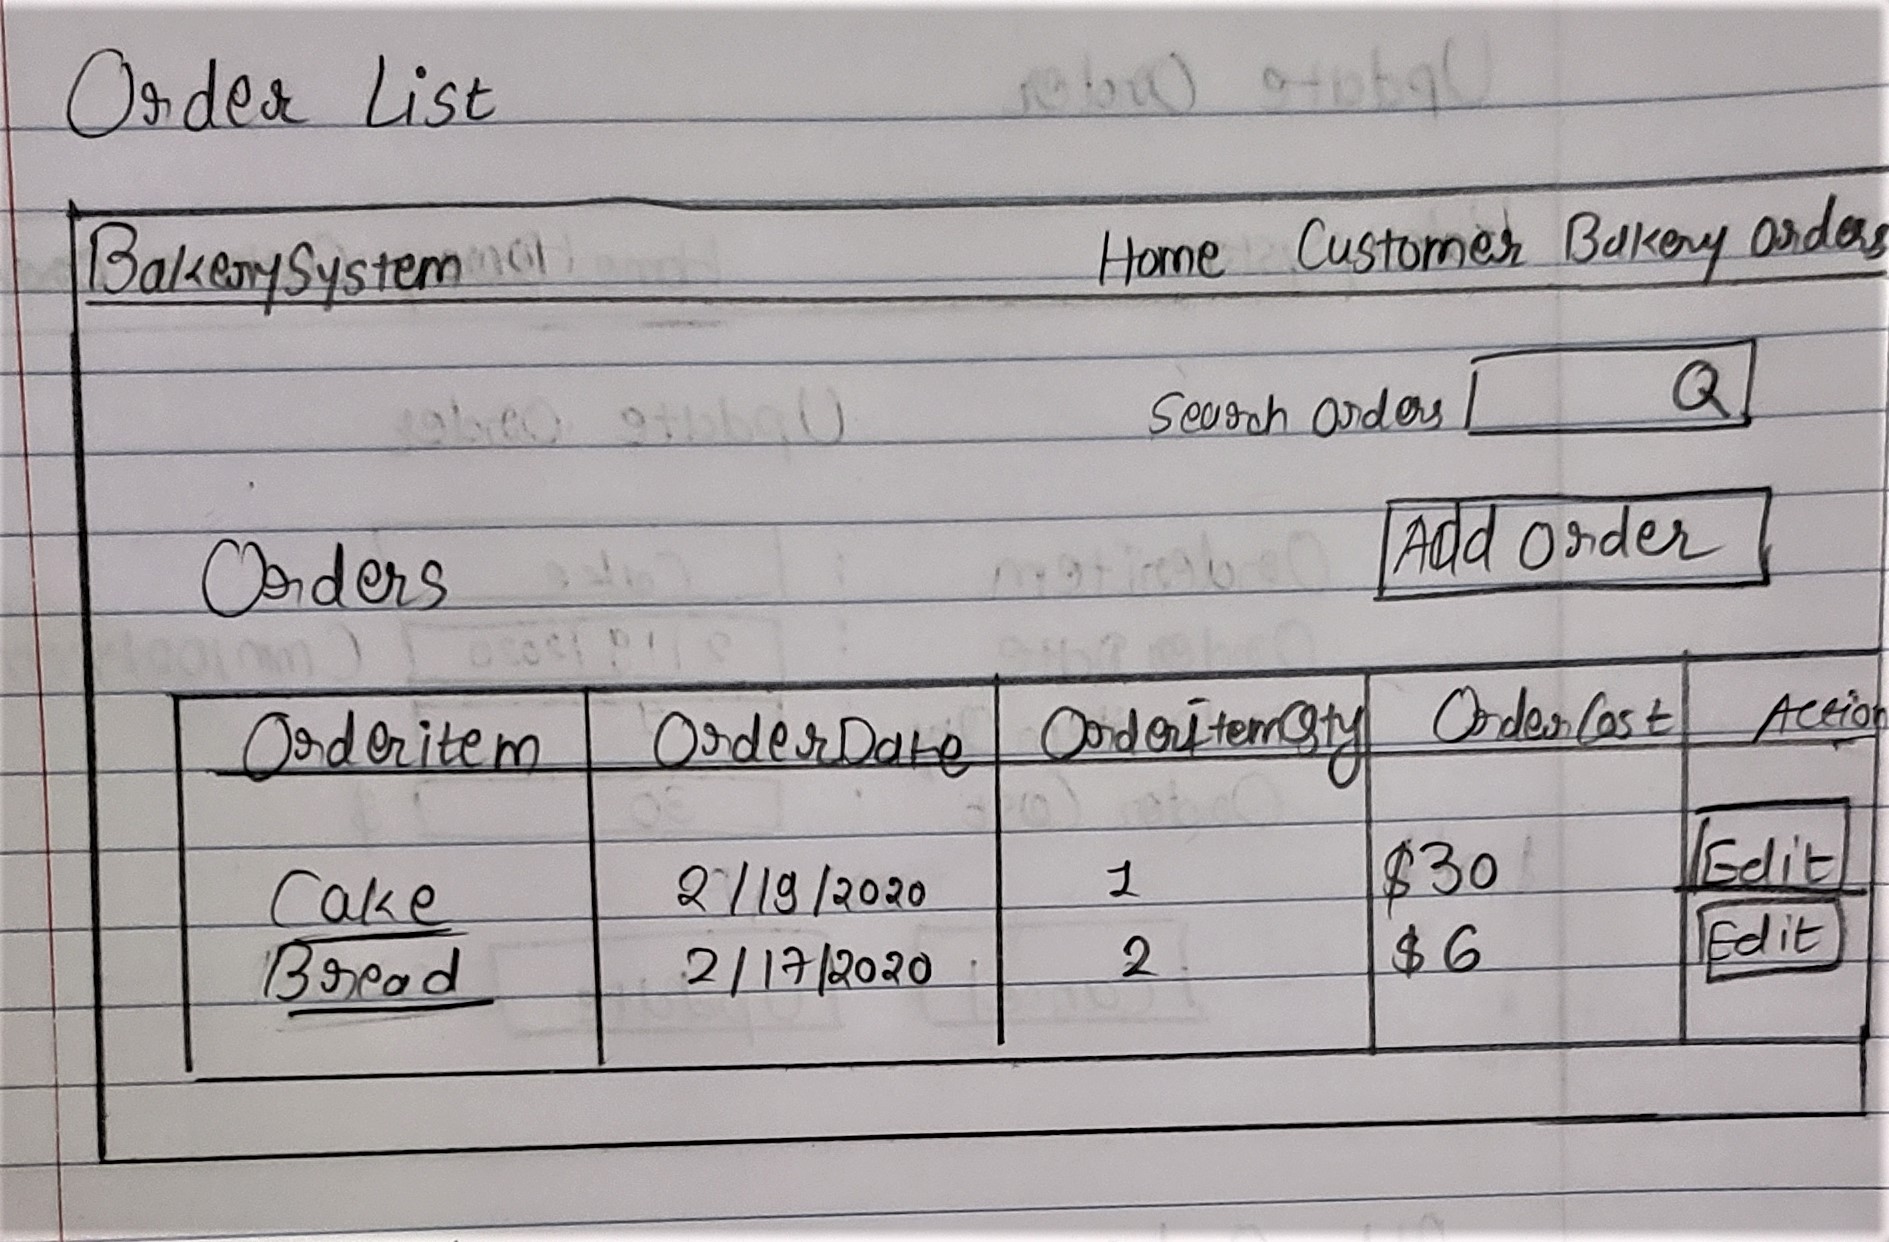 Order List
BakerySystem Home Customer Bakery Orders
Search Orders
Add Order
Orders
Orderitem OrderDate OrderItemQty OrderCost Action
Cake 2/19/2020 1 $30 Edit
Bread 2/17/2020 2 $6 Edit